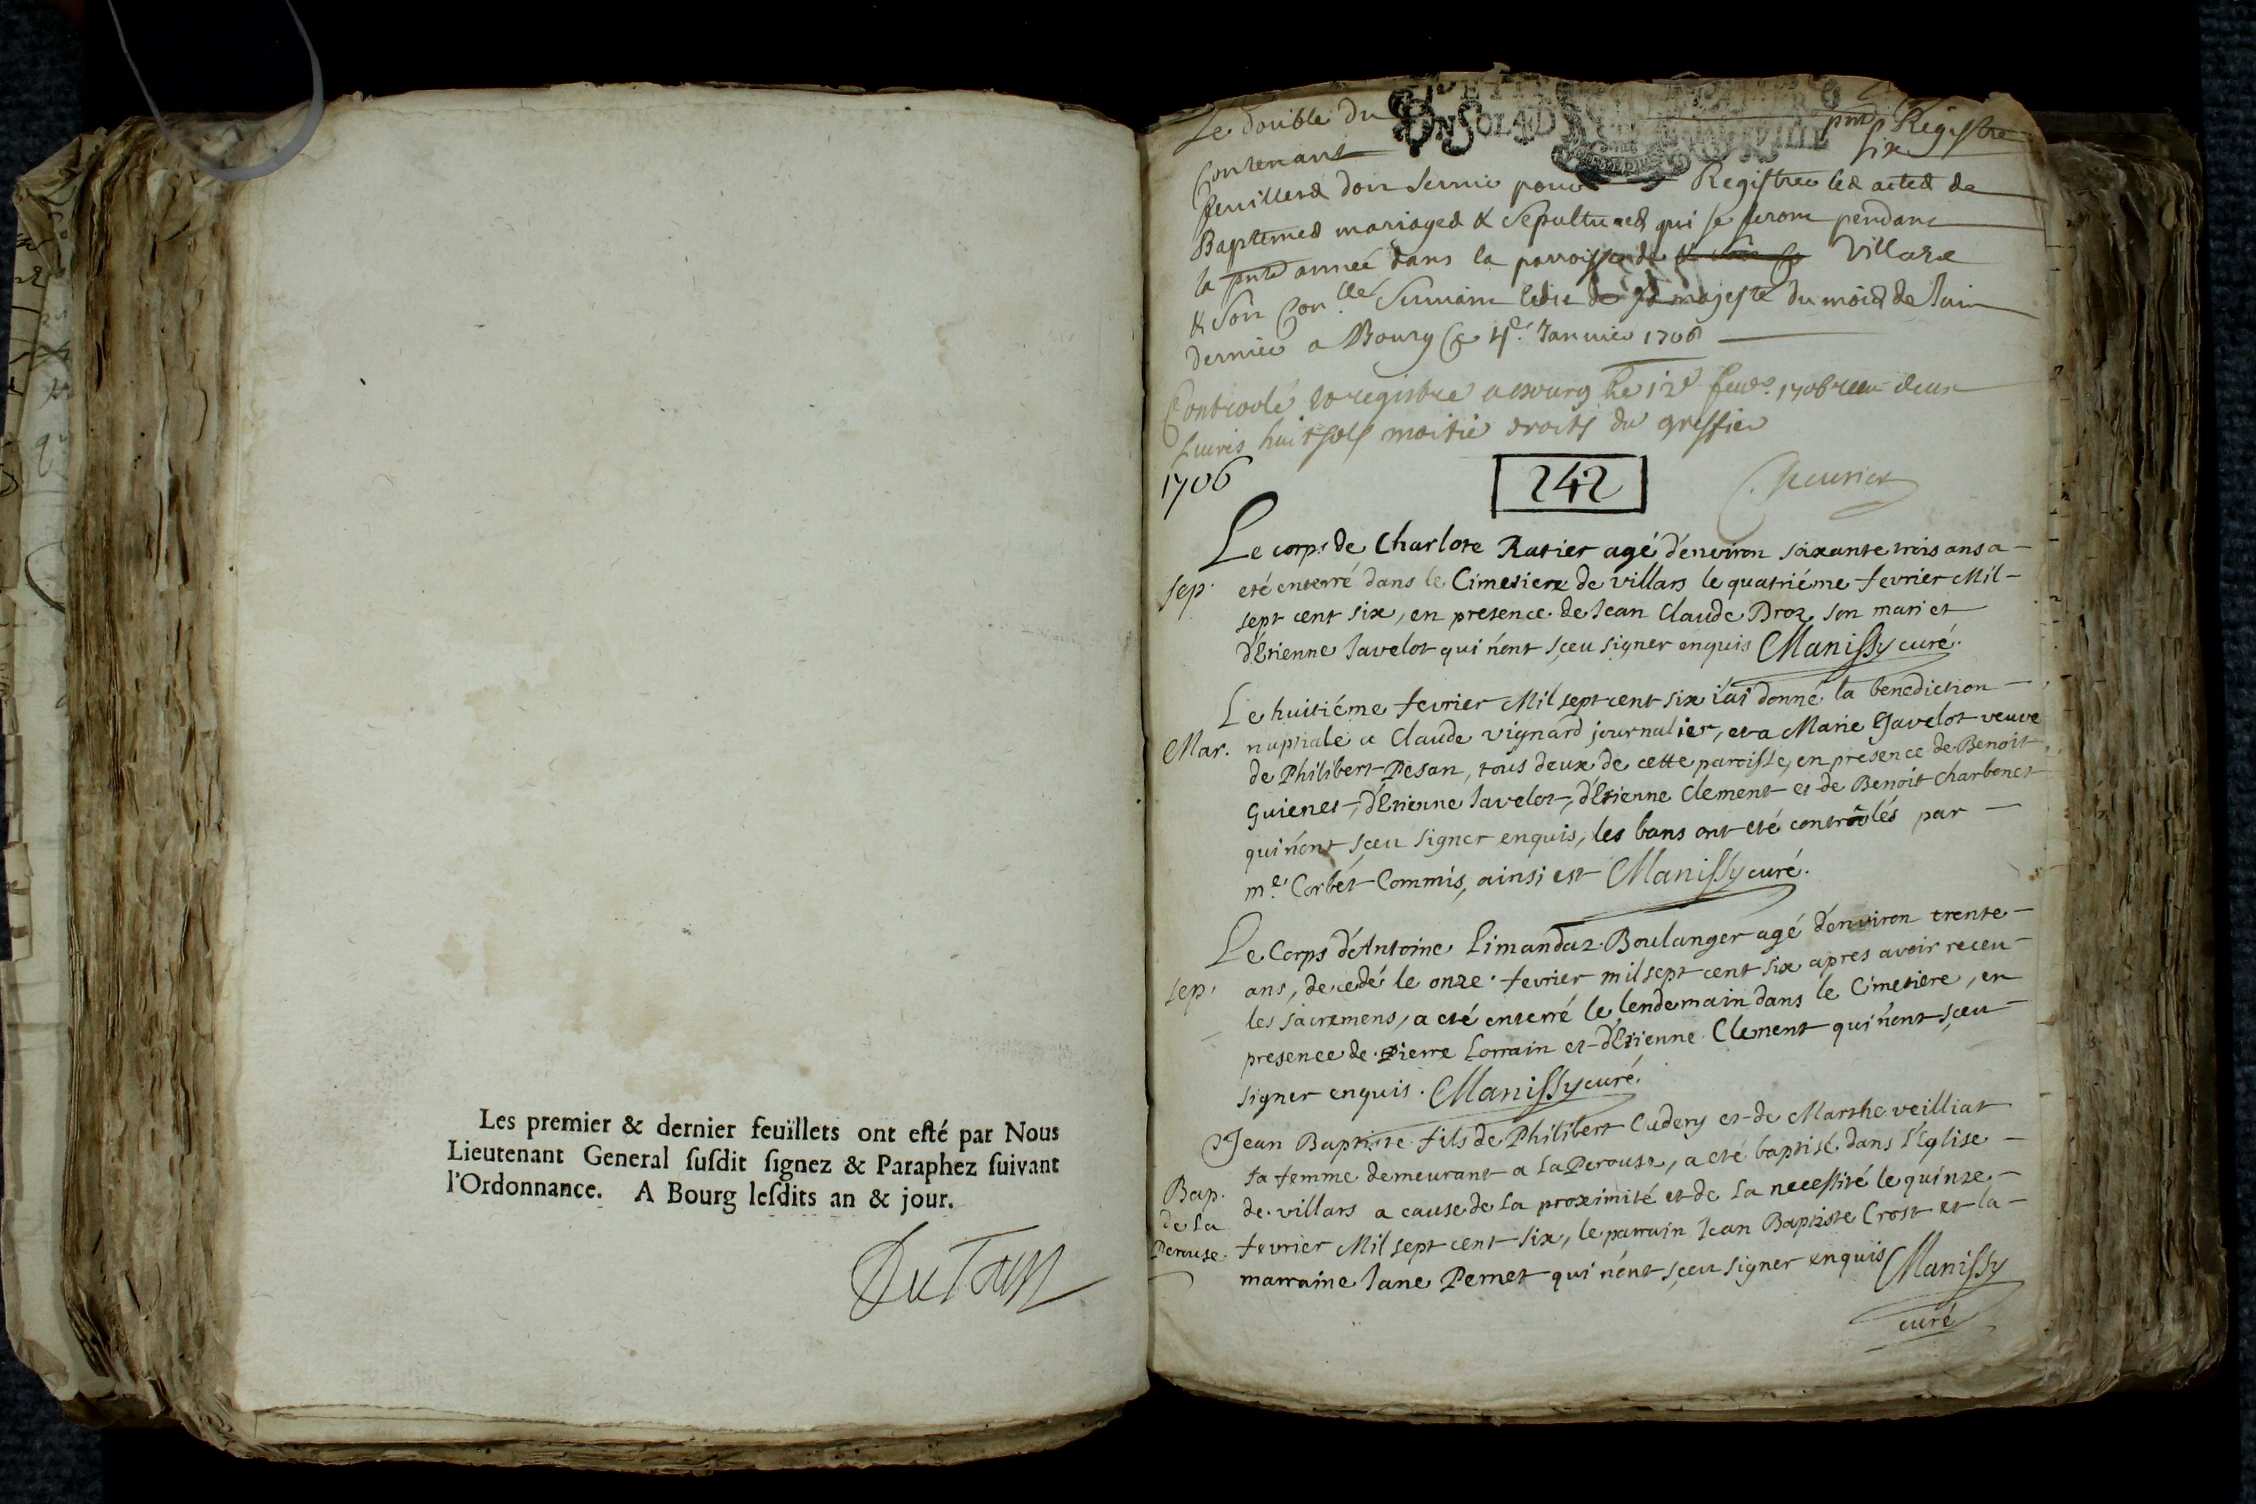 Les premier & dernier feüillets ont esté par Nous
Lieutenant General susdit signez & Paraphez suivant
l'Ordonnance. A Bourg lesdits an & jour.
Le double du pnt Registre
Contenant six
feuilletz doit servir pour Registrer les actes de
Baptemes mariages & sepultures qui se feront pendant
la pnte année dans la parroisse de Villars
& son suivant ledit de sa majesté du mois de Juin
dernier a Bourg ce 4e. Janvier 1706
Controolé Enregistre a Bourg Le 12e feuer. 1706 receu deux
Liuris huit sols moitié droits du greffier
1706
242
Le corps de Charlote Ratier agé d'environ soixante trois ans a
Sep. eté enterré dans le Cimetiere de villars le quatriéme fevrier Mil
sept cent six, en presence de Jean Claude Broz son mari et
d'Etienne Javelot qui n'ont sçeu signer enquis Manissy curé.
Le huitiéme fevrier Mil sept cent six i'ai donné la benediction
Mar. nuptiale a Claude vignard journalier, et a Marie Gavelot veuve
de Philibert Pesan, tous deux de cette paroisse, en presence de Benoit
Guienet, d'Etienne Javelot, d'Etienne Clement et de Benoit Charbonet
qui n'ont sçeu signer enquis, les bans ont eté contrôlés par
me. Corbet Commis, ainsi est Manissy curé.
Le Corps d'Antoine Limandaz Boulanger agé d'environ trente
Sep. ans, decedé le onze fevrier mil sept cent six apres avoir receu
les sacremens, a eté enterré le lendemain dans le Cimetiere, en
presence de Pierre Lorrain et d'Etienne Clement qui n'ont sçeu
signer enquis. Manissy curé.
Jean Baptiste fils de Philibert Cudery et de Marthe veilliat
sa femme demeurant a La Perouse, a eté baptisé dans l'Eglise
Bap. de villars a cause de la proximité et de la necessité le quinze
de La
Perouse. fevrier Mil sept cent six, le parrain Jean Baptiste Crost et la
marraine Jane Pernet qui n'ont sçeu signer enquis Manissy
curé